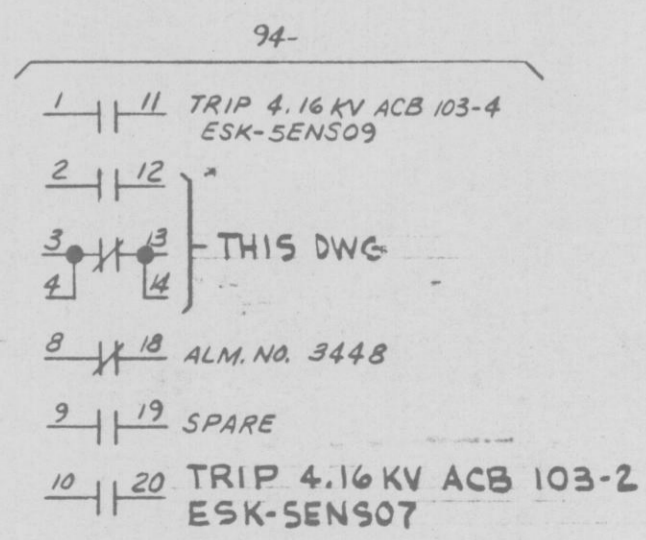 94-
1 11 TRIP 4.16 KV ACB 103-4
ESK-5ENS09
2 12 *
3 13
THIS DWG
4 14
8 18 ALM. NO. 3448
9 19 SPARE
10 20 TRIP 4.16 KV ACB 103-2
ESK-5ENS07